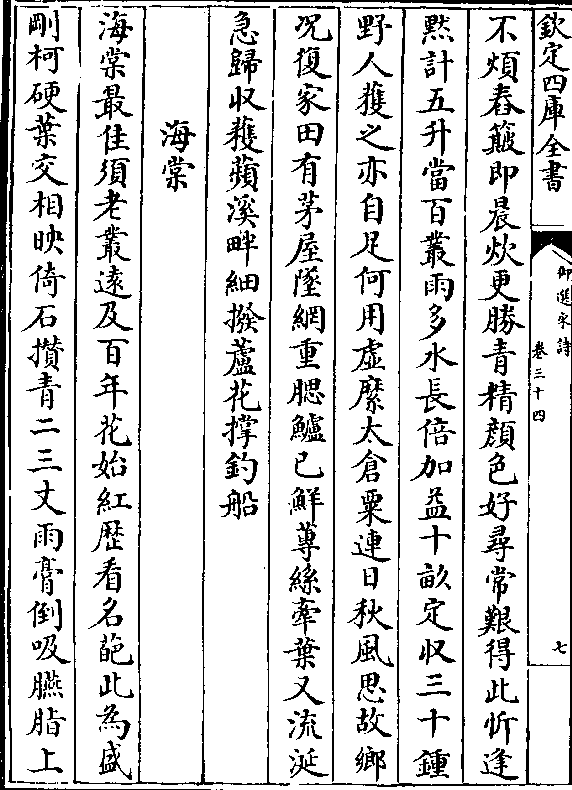 欽定四庫全書
御選宋詩
卷三十四
七
不煩舂簸即晨炊更勝青精顔色好尋常艱得此忻逢
㸃計五升當百叢雨多水長倍加益十畝定収三十鍾
野人穫之亦自足何用虛縻太倉粟連日秋風思故鄉
况復家田有茅屋墜網重腮鱸已鮮蓴絲牽葉又流涎
急歸収穫蘋溪畔細撥蘆花撐釣船
海棠
海棠最佳須老叢遠及百年花始紅歴看名葩此為盛
剛柯硬葉交相映倚石攢青二三丈雨膏倒吸臙脂上